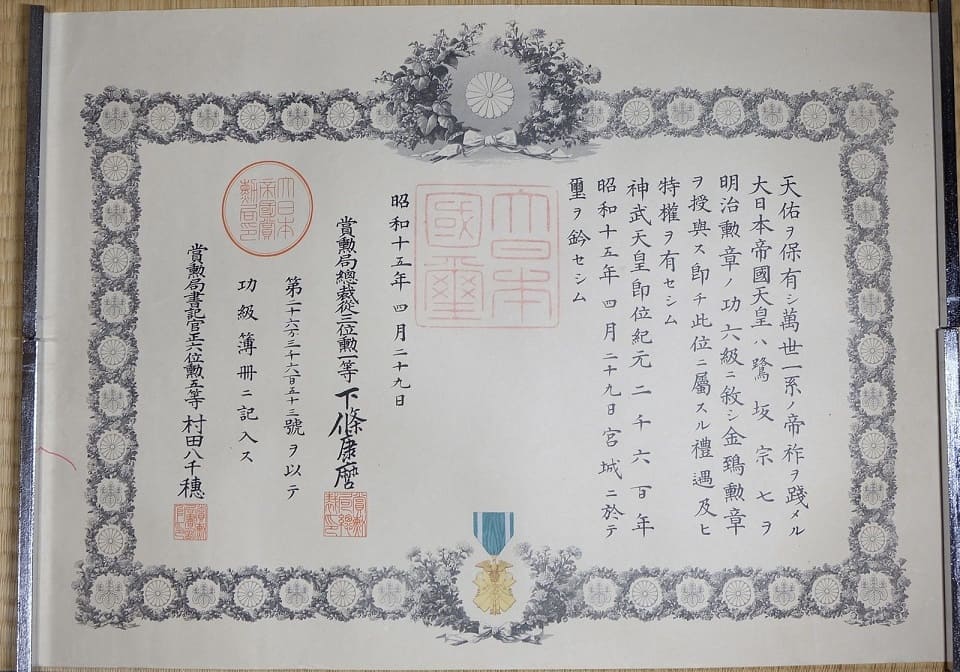 天佑ヲ保有シ萬世一系ノ帝祚ヲ踐メル
大日本帝國天皇ハ鷺坂宗七ヲ
明治勲章ノ功六級ニ敘シ金鵄勲章
ヲ授與ス即チ此位ニ屬スル禮遇及ヒ
特權ヲ有セシム
神武天皇即位紀元二千六百年
昭和十五年四月二十九日宮城ニ於テ
璽ヲ鈐セシム
大日本
國璽
昭和十五年四月二十九日
賞勲局總裁從三位勲一等下條康麿
賞勲局總裁印
第二十六万三千六百五十三號ヲ以テ
功級簿冊ニ記入ス
大日本帝國賞勲局印
賞勲局書記官正六位勲五等村田八千穗